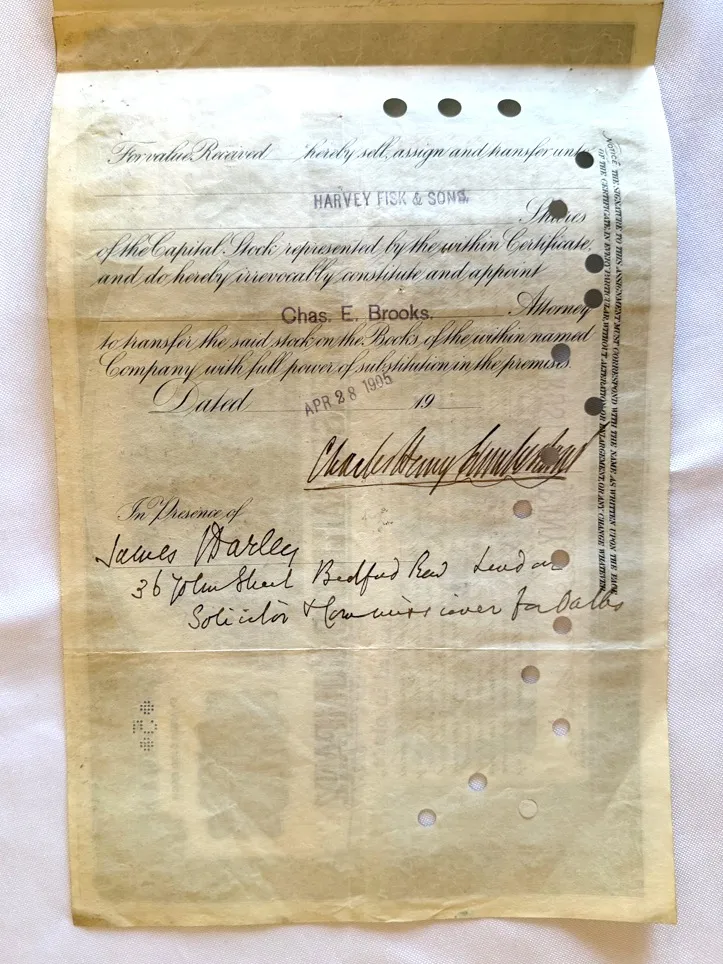 For value Received hereby sell, assign and transfer unto
HARVEY FISK & SONS.
Shares
of the Capital Stock represented by the within Certificate,
and do hereby irrevocably constitute and appoint
Chas. E. Brooks. Attorney
to transfer the said stock on the Books of the within named
Company with full power of substitution in the premises.
Dated APR 28 1905 19
Charles Henry
In Presence of
James Harley
36 John Street Bedford Row London
Solicitor & Commissioner for Oaths
NOTICE. THE SIGNATURE TO THIS ASSIGNMENT MUST CORRESPOND WITH THE NAME AS WRITTEN UPON THE FACE
OF THE CERTIFICATE IN EVERY PARTICULAR WITHOUT ALTERATION OR ENLARGEMENT, OR ANY CHANGE WHATEVER.